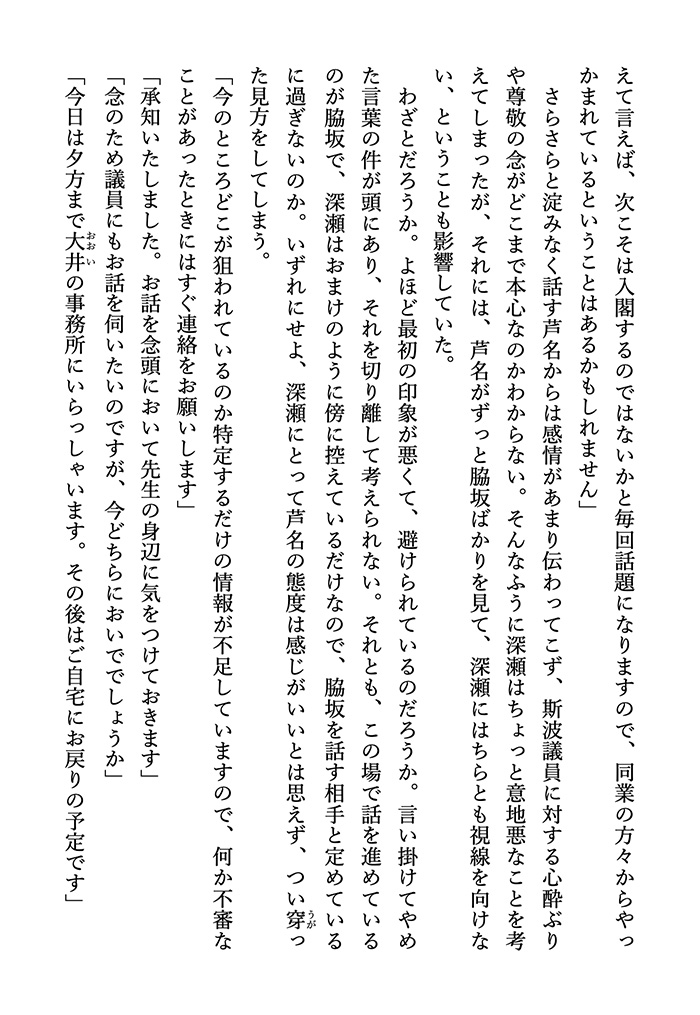 えて言えば、次こそは入閣するのではないかと毎回話題になりますので、同業の方々からやっ
かまれているということはあるかもしれません」
　さらさらと淀みなく話す芦名からは感情があまり伝わってこず、斯波議員に対する心酔ぶり
や尊敬の念がどこまで本心なのかわからない。そんなふうに深瀬はちょっと意地悪なことを考
えてしまったが、それには、芦名がずっと脇坂ばかりを見て、深瀬にはちらとも視線を向けな
い、ということも影響していた。
　わざとだろうか。よほど最初の印象が悪くて、避けられているのだろうか。言い掛けてやめ
た言葉の件が頭にあり、それを切り離して考えられない。それとも、この場で話を進めている
のが脇坂で、深瀬はおまけのように傍に控えているだけなので、脇坂を話す相手と定めている
に過ぎないのか。いずれにせよ、深瀬にとって芦名の態度は感じがいいとは思えず、つい穿うがっ
た見方をしてしまう。
「今のところどこが狙われているのか特定するだけの情報が不足していますので、何か不審な
ことがあったときにはすぐ連絡をお願いします」
「承知いたしました。お話を念頭において先生の身辺に気をつけておきます」
「念のため議員にもお話を伺いたいのですが、今どちらにおいででしょうか」
「今日は夕方まで大井おおいの事務所にいらっしゃいます。その後はご自宅にお戻りの予定です」